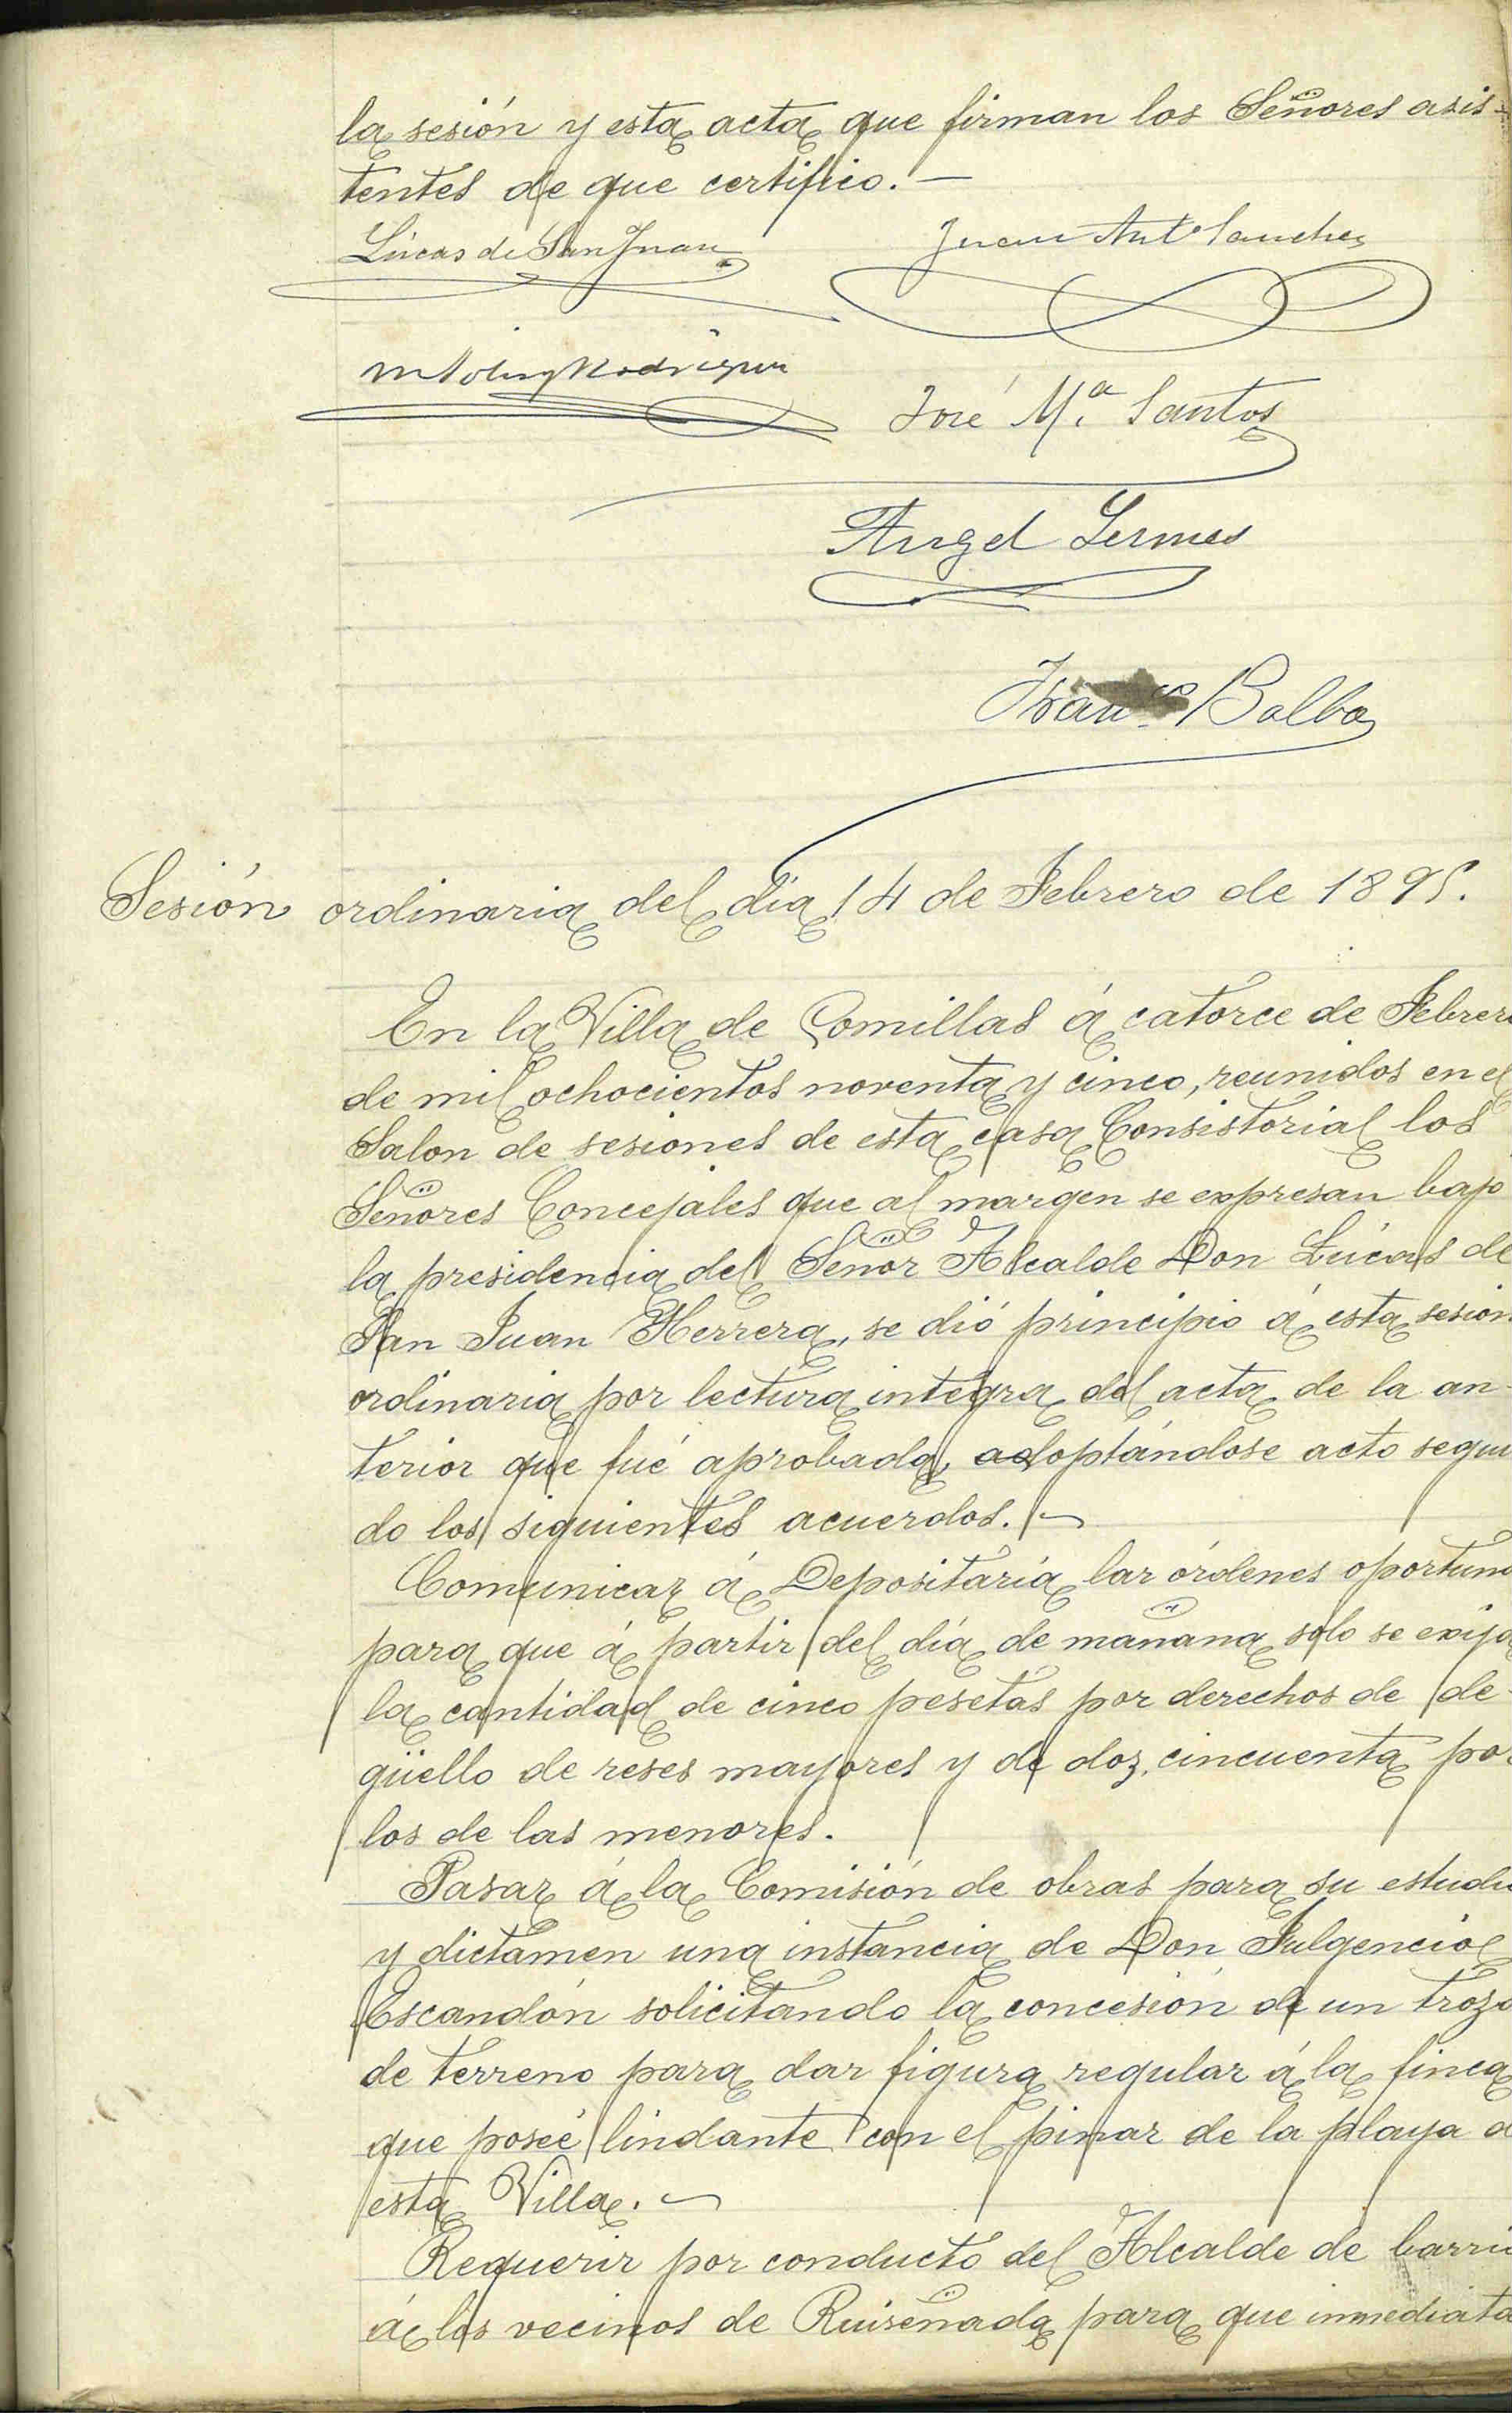 la sesión y esta acta que firman los Señores asis-
tentes de que certifico.—
Lúcas de San Juan
Juan Antº Sanchez
Rodriguez
José Mª Santos
Angel Lermes
Franco Balbas
Sesión ordinaria del día 14 de Febrero de 1895.
En la Villa de Comillas á catorce de Febrero
de mil ochocientos noventa y cinco, reunidos en el
Salon de sesiones de esta casa Consistorial los
Señores Concejales que al margen se expresan bajo
la presidencia del Señor Alcalde Don Lúcas de
San Juan Herrera, se dió principio á esta sesión
ordinaria por lectura integra del acta de la an-
terior que fué aprobada, adoptándose acto segui
do los siguientes acuerdos.—
Comunicar á Depositaría lar órdenes oportuna
para que á partir del día de mañana solo se exija
la cantidad de cinco pesetas por derechos de de-
güello de reses mayores y de doz, cincuenta por
los de las menores.
Pasar á la Comisión de obras para su estudio
y dictamen una instancia de Don Fulgencio
Escandón solicitando la concesión de un trozo
de terreno para dar figura regular á la finca
que poseé lindante con el pinar de la playa d
esta Villa.—
Requerir por conducto del Alcalde de barrio
á los vecinos de Ruiseñada para que inmediata